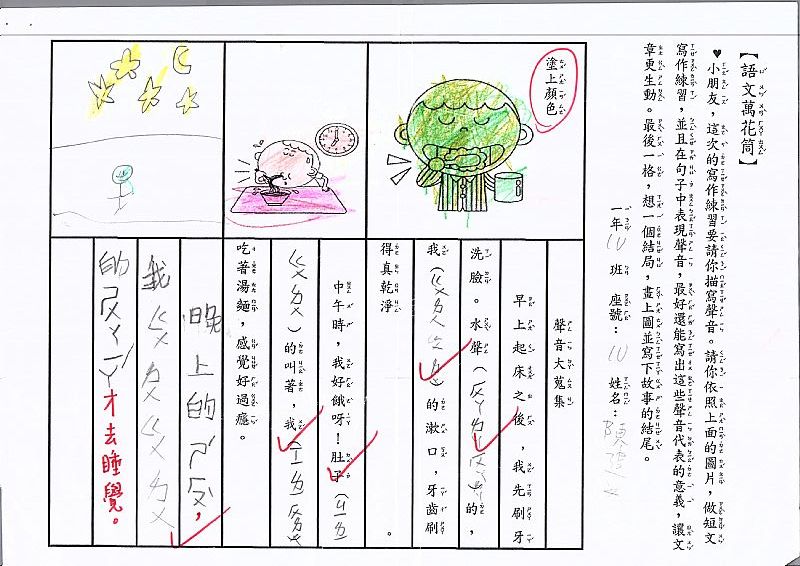 【語文萬花筒】
♥小朋友，這次的寫作練習要請你描寫聲音。請你依照上面的圖片，做短文
寫作練習，並且在句子中表現聲音，最好還能寫出這些聲音代表的意義，讓文
章更生動。最後一格，想一個結局，畫上圖並寫下故事的結尾。
一年 10 班 座號：10 姓名：陳
塗上顏色
聲音大蒐集
早上起床之後，我先刷牙
洗臉。水聲（ 的，
我（ㄍㄨㄌㄨ ）的漱口，牙齒刷
得真乾淨 。
中午時，我好餓呀！肚子（ㄐㄧㄌ
ㄍㄨㄌㄨ）的叫著，我（
吃著湯麵，感覺好過癮。
晚上的 ，
我ㄍㄨㄌㄨㄍㄨㄌㄨ
的 才去睡覺。